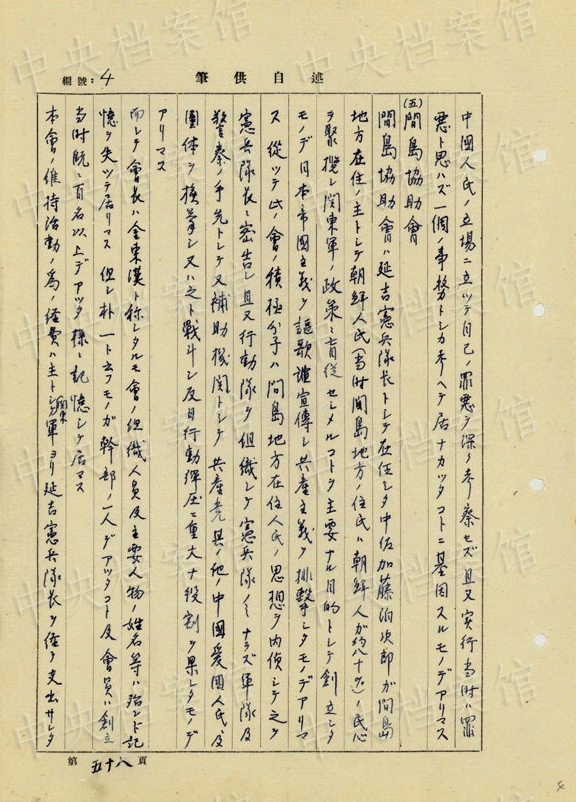 編號: 4
述自供筆
中國人民ノ立場ニ立ッテ自己ノ罪悪ヲ深ク考察セズ且又実行当時ハ罪
悪ト思ハズ一個ノ事務トシカ考ヘテ居ナカッタコトニ基因スルモノデアリマス
(五)間島協助會
間島協助會ハ延吉憲兵隊長トシテ在任シタ中佐加藤泊次郎ガ間島
地方在住ノ主トシテ朝鮮人民(当時間島地方ノ住民ハ朝鮮人ガ約八十%)ノ民心
ヲ聚攬シ関東軍ノ政策ニ盲従セシメルコトヲ主要ナル目的トシテ創立シタ
モノデ日本帝國主義ヲ謳歌誼宣傳シ共産主義ヲ排撃シタモノデアリマ
ス 從ッテ此ノ會ノ積極分子ハ間島地方在住人民ノ思想ヲ内偵シテ之ヲ
憲兵隊長ニ密告シ且又行動隊ヲ組織シテ憲兵隊ノミナラズ軍隊及
警察ノ手先トシテ又補助機関トシテ共産党其ノ他ノ中國愛國人民及
團体ヲ検挙シ又ハ之ト戰斗シ反日行動弾圧ニ重大ナ役割ヲ果シタモノデ
アリマス
而シテ會長ハ金東漢ト称シタルモ會ノ組織人員及主要人物ノ姓名等ハ殆ンド記
憶ヲ失ッテ居リマス 但シ朴一ト云フモノガ幹部ノ一人デアッタコト及會員ハ創立
当時既ニ百名以上デアッタ様ニ記憶シテ居マス
本會ノ維持活動ノ為ノ経費ハ主トシテ関東軍ヨリ延吉憲兵隊長ヲ経テ支出サレタ
第五十八頁
中央档案馆